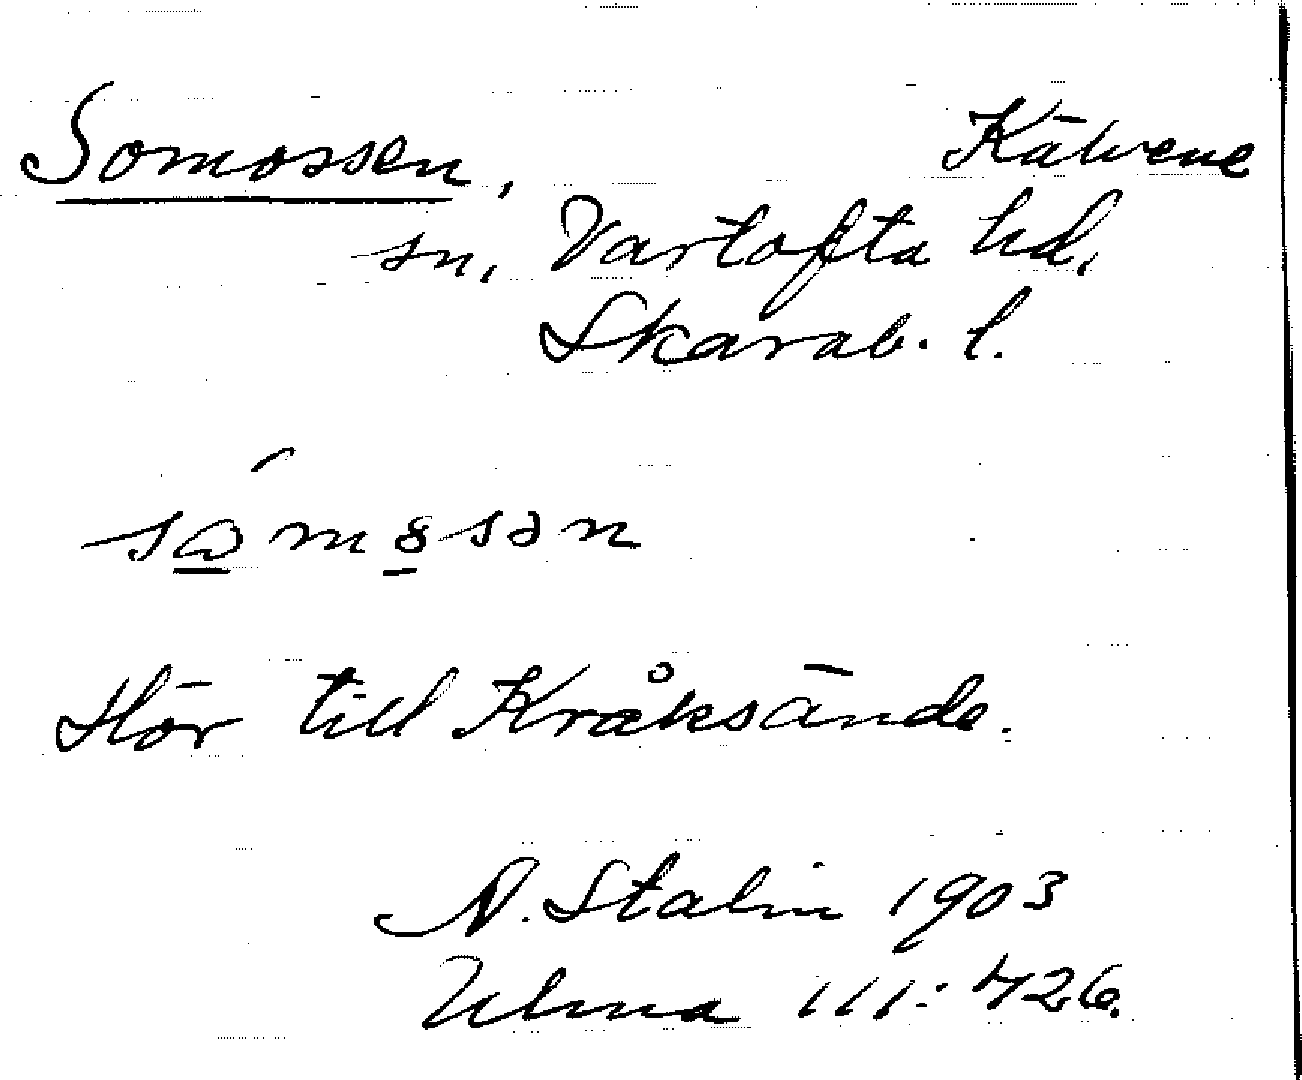 Somossen, Kälvene
sn, Vartofta hd,
Skarab. l.
såmosən
Hör till Kråksände.
N. Stalin 1903
Ulma 111:426.